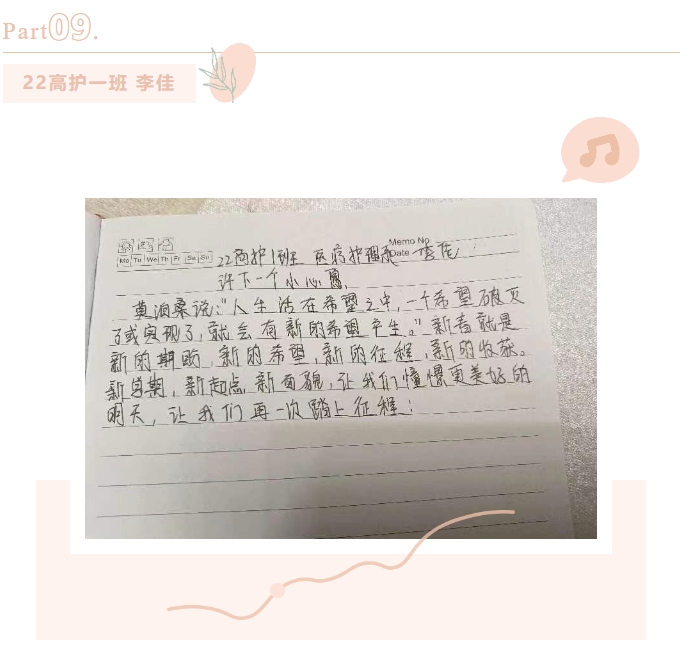 Part09.
22高护一班 李佳
Memo No.
Mo Tu We Th Fr Sa Su
Date
22高护1班 医疗护理系 李佳
许下一个小心愿
莫泊桑说:“人生活在希望之中,一个希望破灭
了或实现了,就会有新的希望产生。”新春就是
新的期盼,新的希望,新的征程,新的收获。
新学期,新起点,新面貌,让我们憧憬更美好的
明天,让我们再一次踏上征程!